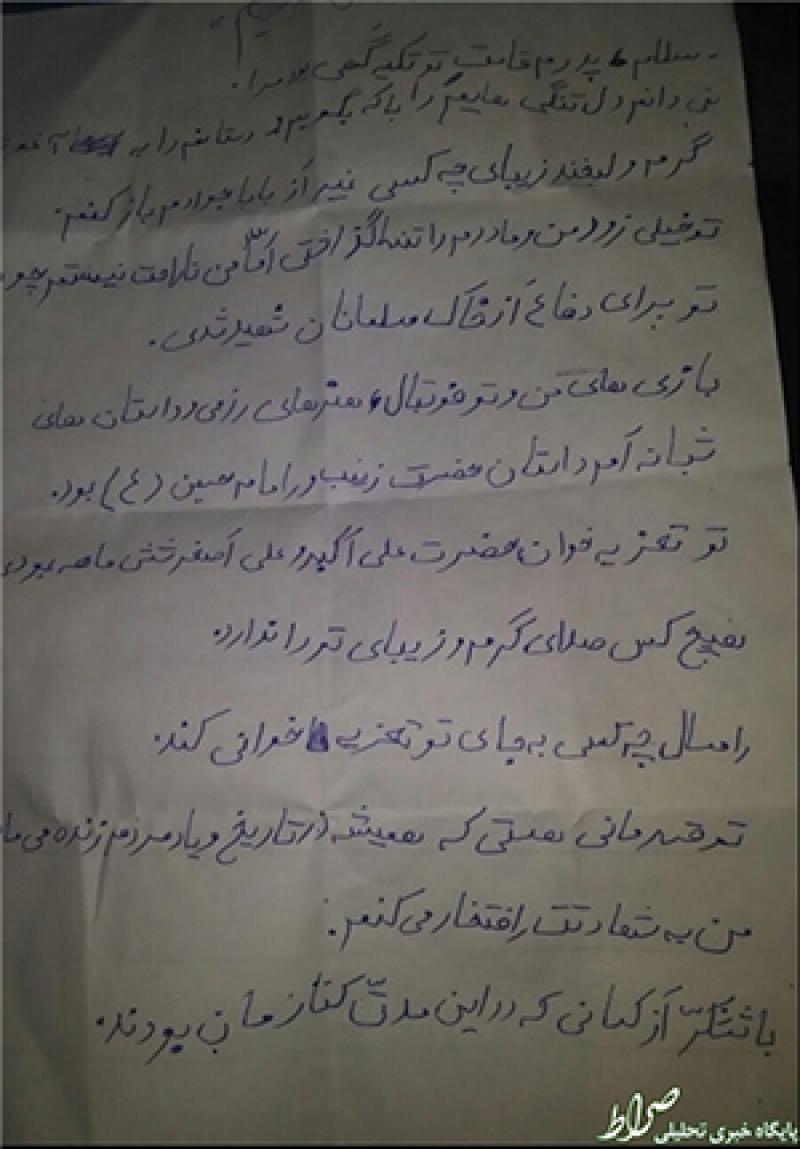 - سلام، پدرم قامت تو تکیه گهی بود مرا.
نمی دانم دل تنگی هایم را با که بگویم و دستانم را به آغو
گرم و لبخند زیبای چه کسی غیر از بابا جوادم باز کنم.
تو خیلی زود من و مادرم را تنها گذاشتی امّا من ناراحت نیستم چو
تو برای دفاع از خاک مسلمانان شهید شدی.
بازی های من و تو فوتبال، هنرهای رزمی و داستان های
شبانه ام داستان حضرت زینب و امام حسین (ع) بود.
تو تعزیه خوان حضرت علی اکبر و علی اصغر شش ماهه بودی
هیچ کس صدای گرم و زیبای تو را ندارد.
امسال چه کسی به جای تو تعزیه خوانی کند.
تو قهرمانی هستی که همیشه در تاریخ و یاد مردم زنده می ما
من به شهادتت افتخار می کنم.
با تشکّر از کسانی که در این مدتّ کنارمان بودند.
صراط
پایگاه خبری تحلیلی